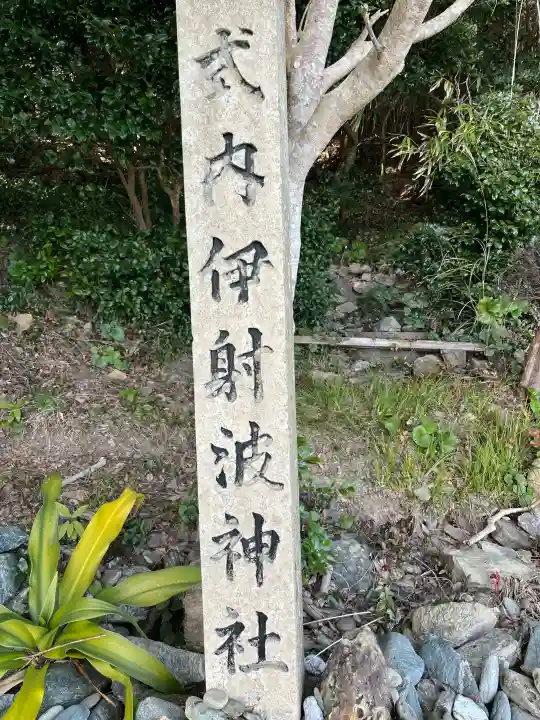 式内伊射波神社